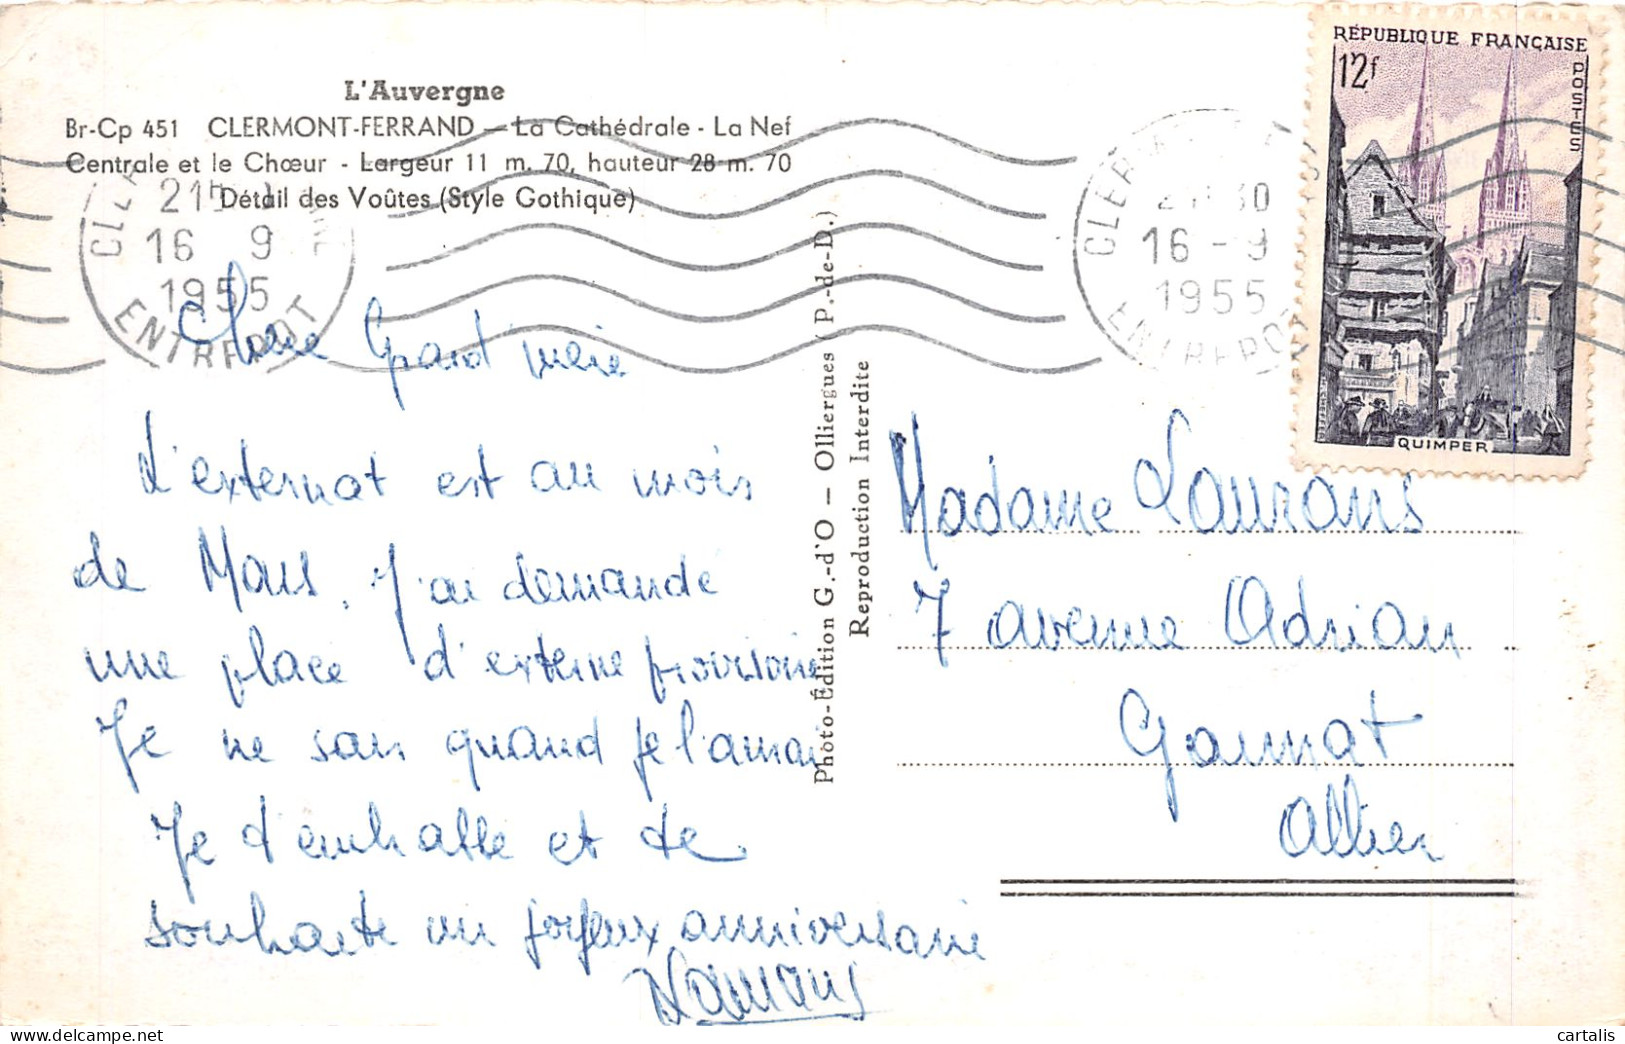 L'Auvergne
Br-Cp 451 CLERMONT-FERRAND - La Cathédrale - La Nef
Centrale et le Chœur - Largeur 11 m. 70, hauteur 28 m. 70
Détail des Voûtes (Style Gothique)
16 9
1955
ENTREPOT
16 - 9
1955
ENTREPOT
RÉPUBLIQUE FRANÇAISE
12f
POSTES
QUIMPER
Chère Grand'mère
L'externat est au mois
de Mars. J'ai demandé
une place d'externe provisoire
Je ne sais quand je l'aurai
Je t'embrasse et te
souhaite un joyeux anniversaire
Laurans
Photo-Édition G.-d'O — Olliergues (P.-de-D.)
Reproduction Interdite
Madame Laurans
7 avenue Adrian
Gannat
Allier
cartalis